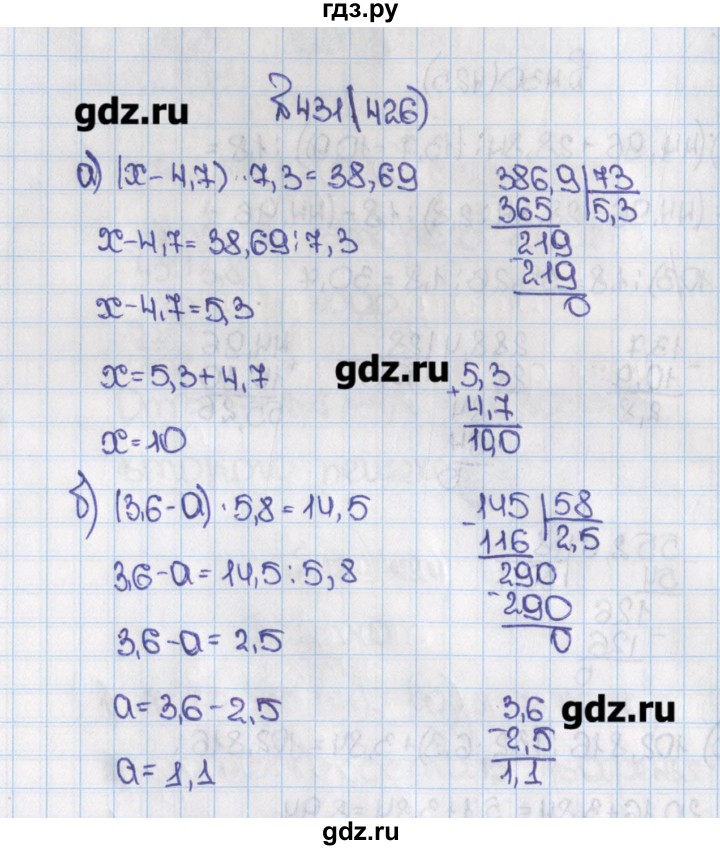 гдз.ру
gdz.ru
№431(426)
а) (x-4,7)·7,3=38,69
x-4,7=38,69:7,3
x-4,7=5,3
x=5,3+4,7
x=10
386,9 73
365 5,3
219
-219
0
gdz.ru
5,3
+4,7
10,0
б) (3,6-a)·5,8=14,5
3,6-a=14,5:5,8
3,6-a=2,5
a=3,6-2,5
a=1,1
-145 58
116 2,5
290
-290
0
gdz.ru
3,6
-2,5
1,1
gdz.ru